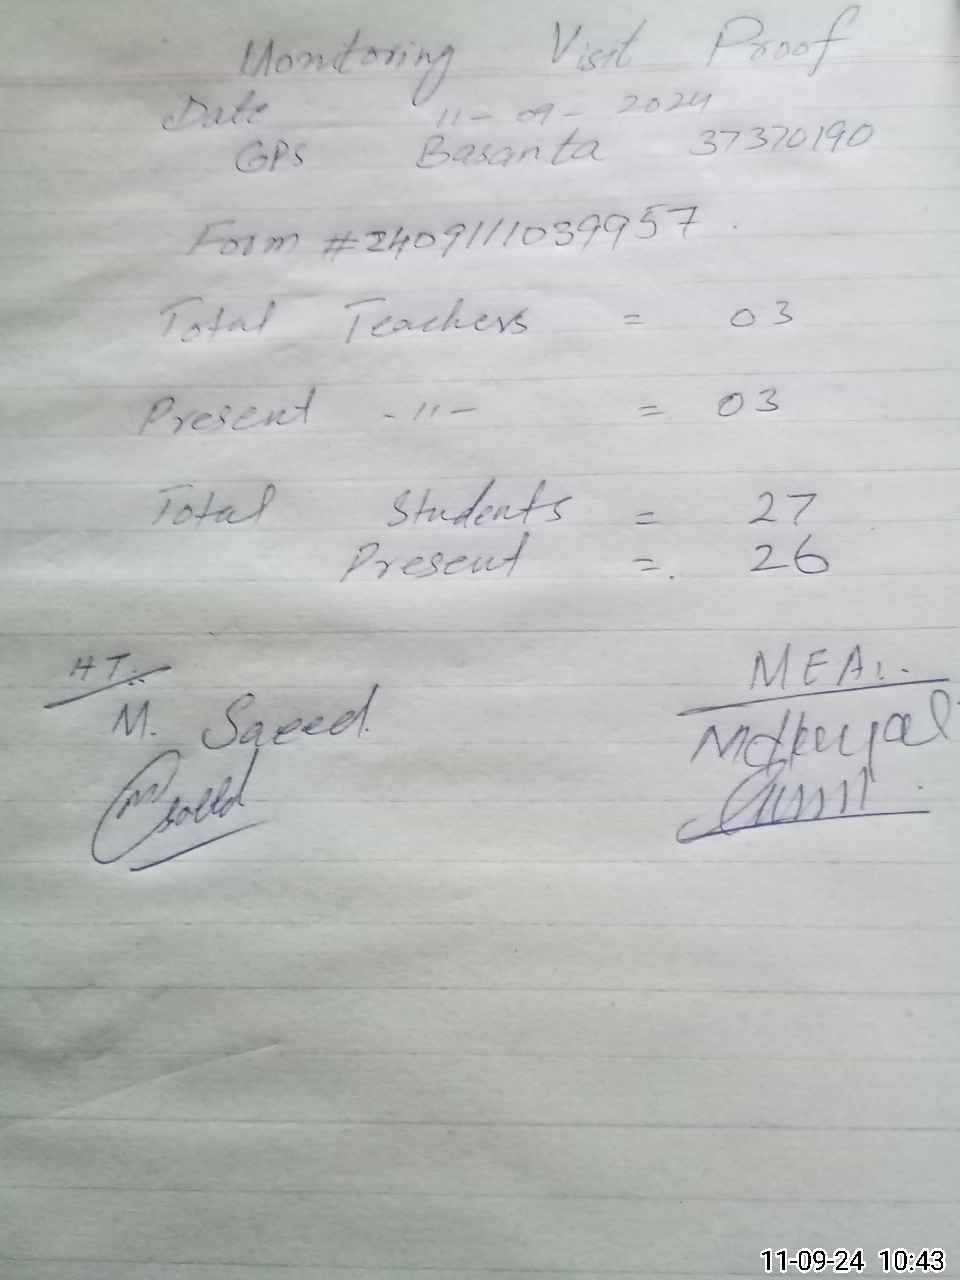 Monitoring Visit Proof
Date 11-09-2024
GPS Basanta 37370190
Form #2409111039957.
Total Teachers = 03
Present -11- = 03
Total Students = 27
Present = 26
HT.
M. Saeed.
MSaeed
MEA
11-09-24 10:43